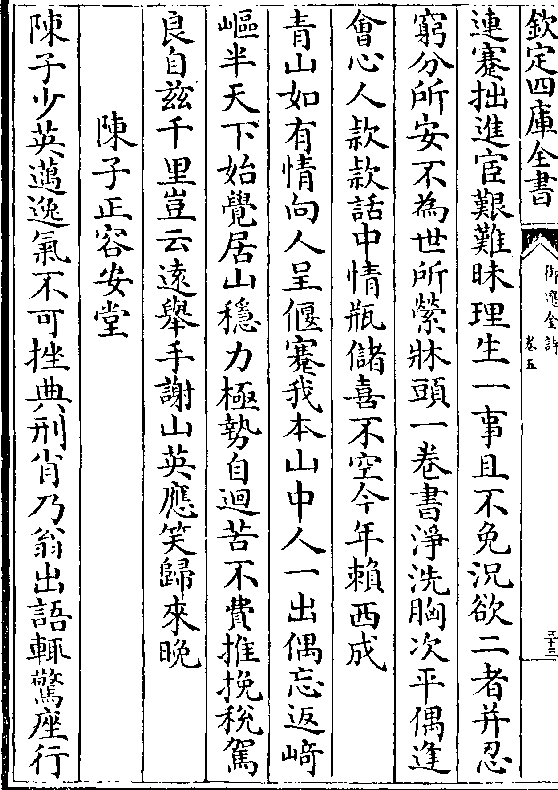 欽定四庫全書
御選金詩
卷五
三十三
連蹇拙進宦艱難昧理生一事且不免況欲二者并忍
窮分所安不為世所縈牀頭一卷書淨洗胸次平偶逢
會心人款款話中情瓶儲喜不空今年賴西成
青山如有情向人呈偃蹇我本山中人一出偶忘返﨑
嶇半天下始覺居山穩力極勢自迴苦不費推挽稅駕
良自兹千里豈云遠舉手謝山英應笑歸來晚
陳子正容安堂
陳子少英邁逸氣不可挫典刑肖乃翁出語輒驚座行